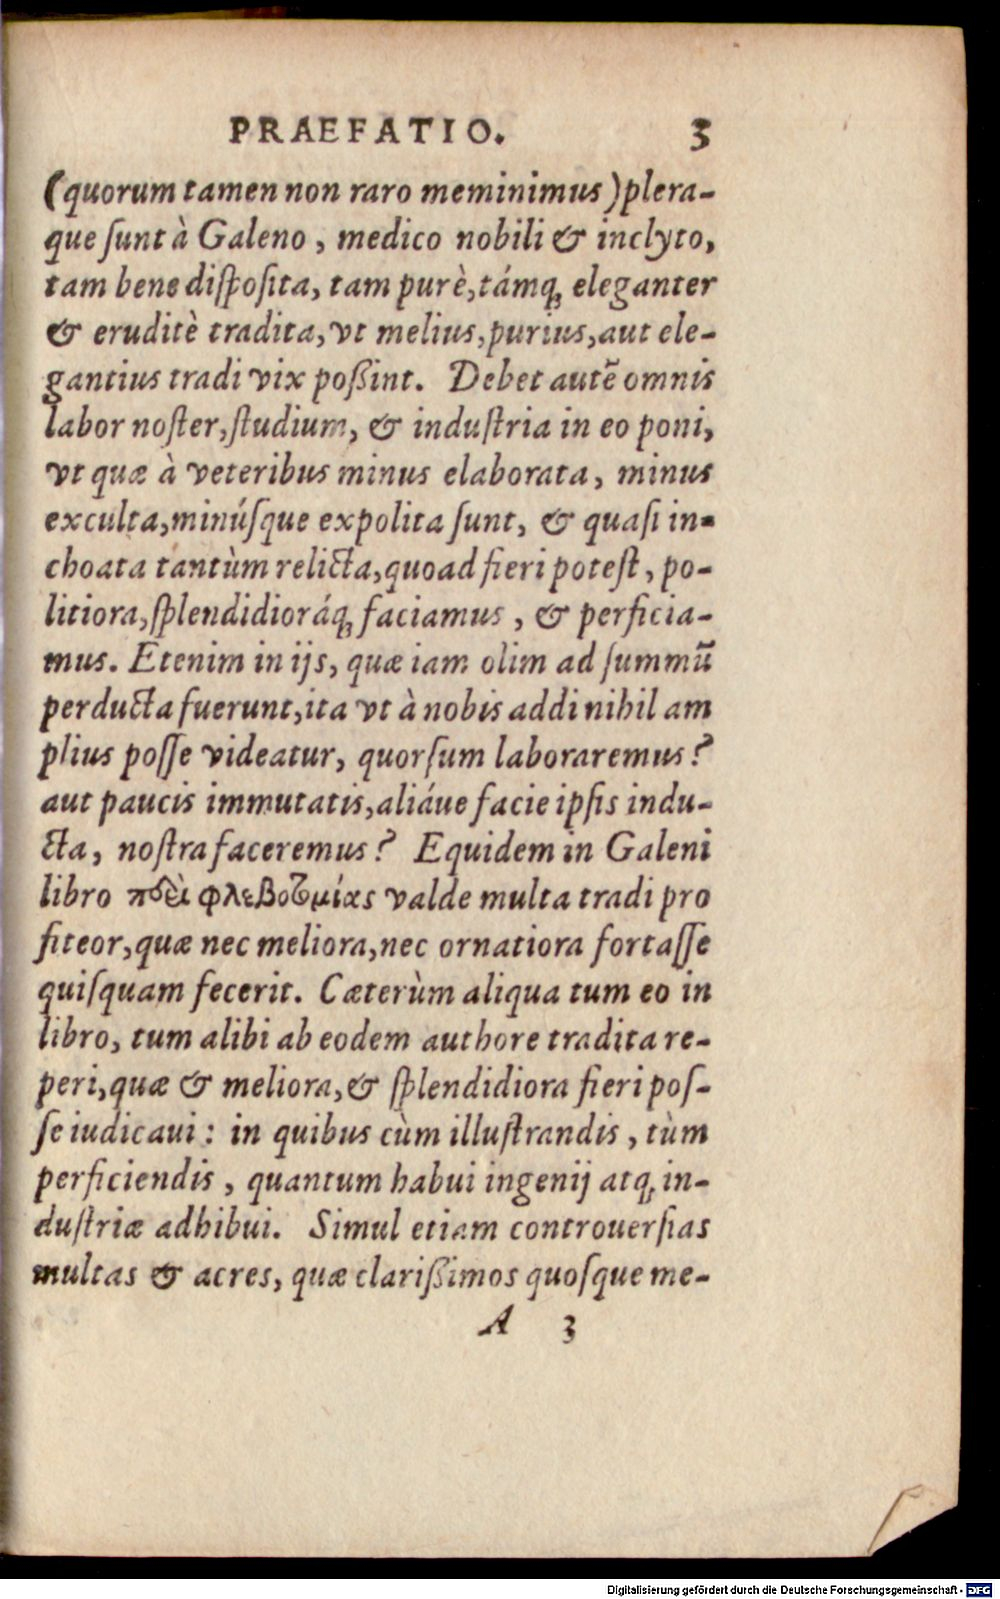 PRAEFATIO. 3
(quorum tamen non raro meminimus) plera-
que ſunt à Galeno, medico nobili & inclyto,
tam bene diſpoſita, tam purè, támq́; eleganter
& eruditè tradita, vt melius, purius, aut ele-
gantius tradi vix poßint. Debet autē omnis
labor noſter, ſtudium, & induſtria in eo poni,
vt quæ à veteribus minus elaborata, minus
exculta, minúſque expolita ſunt, & quaſi in-
choata tantùm relicta, quoad fieri poteſt, po-
litiora, ſplendidioráq; faciamus, & perficia-
mus. Etenim in ijs, quæ iam olim ad ſummū
perducta fuerunt, ita vt à nobis addi nihil am
plius poſſe videatur, quorſum laboraremus?
aut paucis immutatis, aliáue facie ipſis indu-
cta, noſtra faceremus? Equidem in Galeni
libro πϖεὶ φλεβοτομίας valde multa tradi pro
fiteor, quæ nec meliora, nec ornatiora fortaſſe
quiſquam fecerit. Cæterùm aliqua tum eo in
libro, tum alibi ab eodem authore tradita re-
peri, quæ & meliora, & ſplendidiora fieri poſ-
ſe iudicaui: in quibus cùm illuſtrandis, tùm
perficiendis, quantum habui ingenij atq; in-
duſtriæ adhibui. Simul etiam controuerſias
multas & acres, quæ clarißimos quoſque me-
A 3
Digitalisierung gefördert durch die Deutsche Forschungsgemeinschaft - DFG